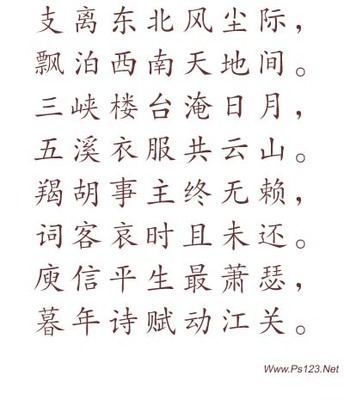 支离东北风尘际，
飘泊西南天地间。
三峡楼台淹日月，
五溪衣服共云山。
羯胡事主终无赖，
词客哀时且未还。
庾信平生最萧瑟，
暮年诗赋动江关。
Www.Ps123.Net